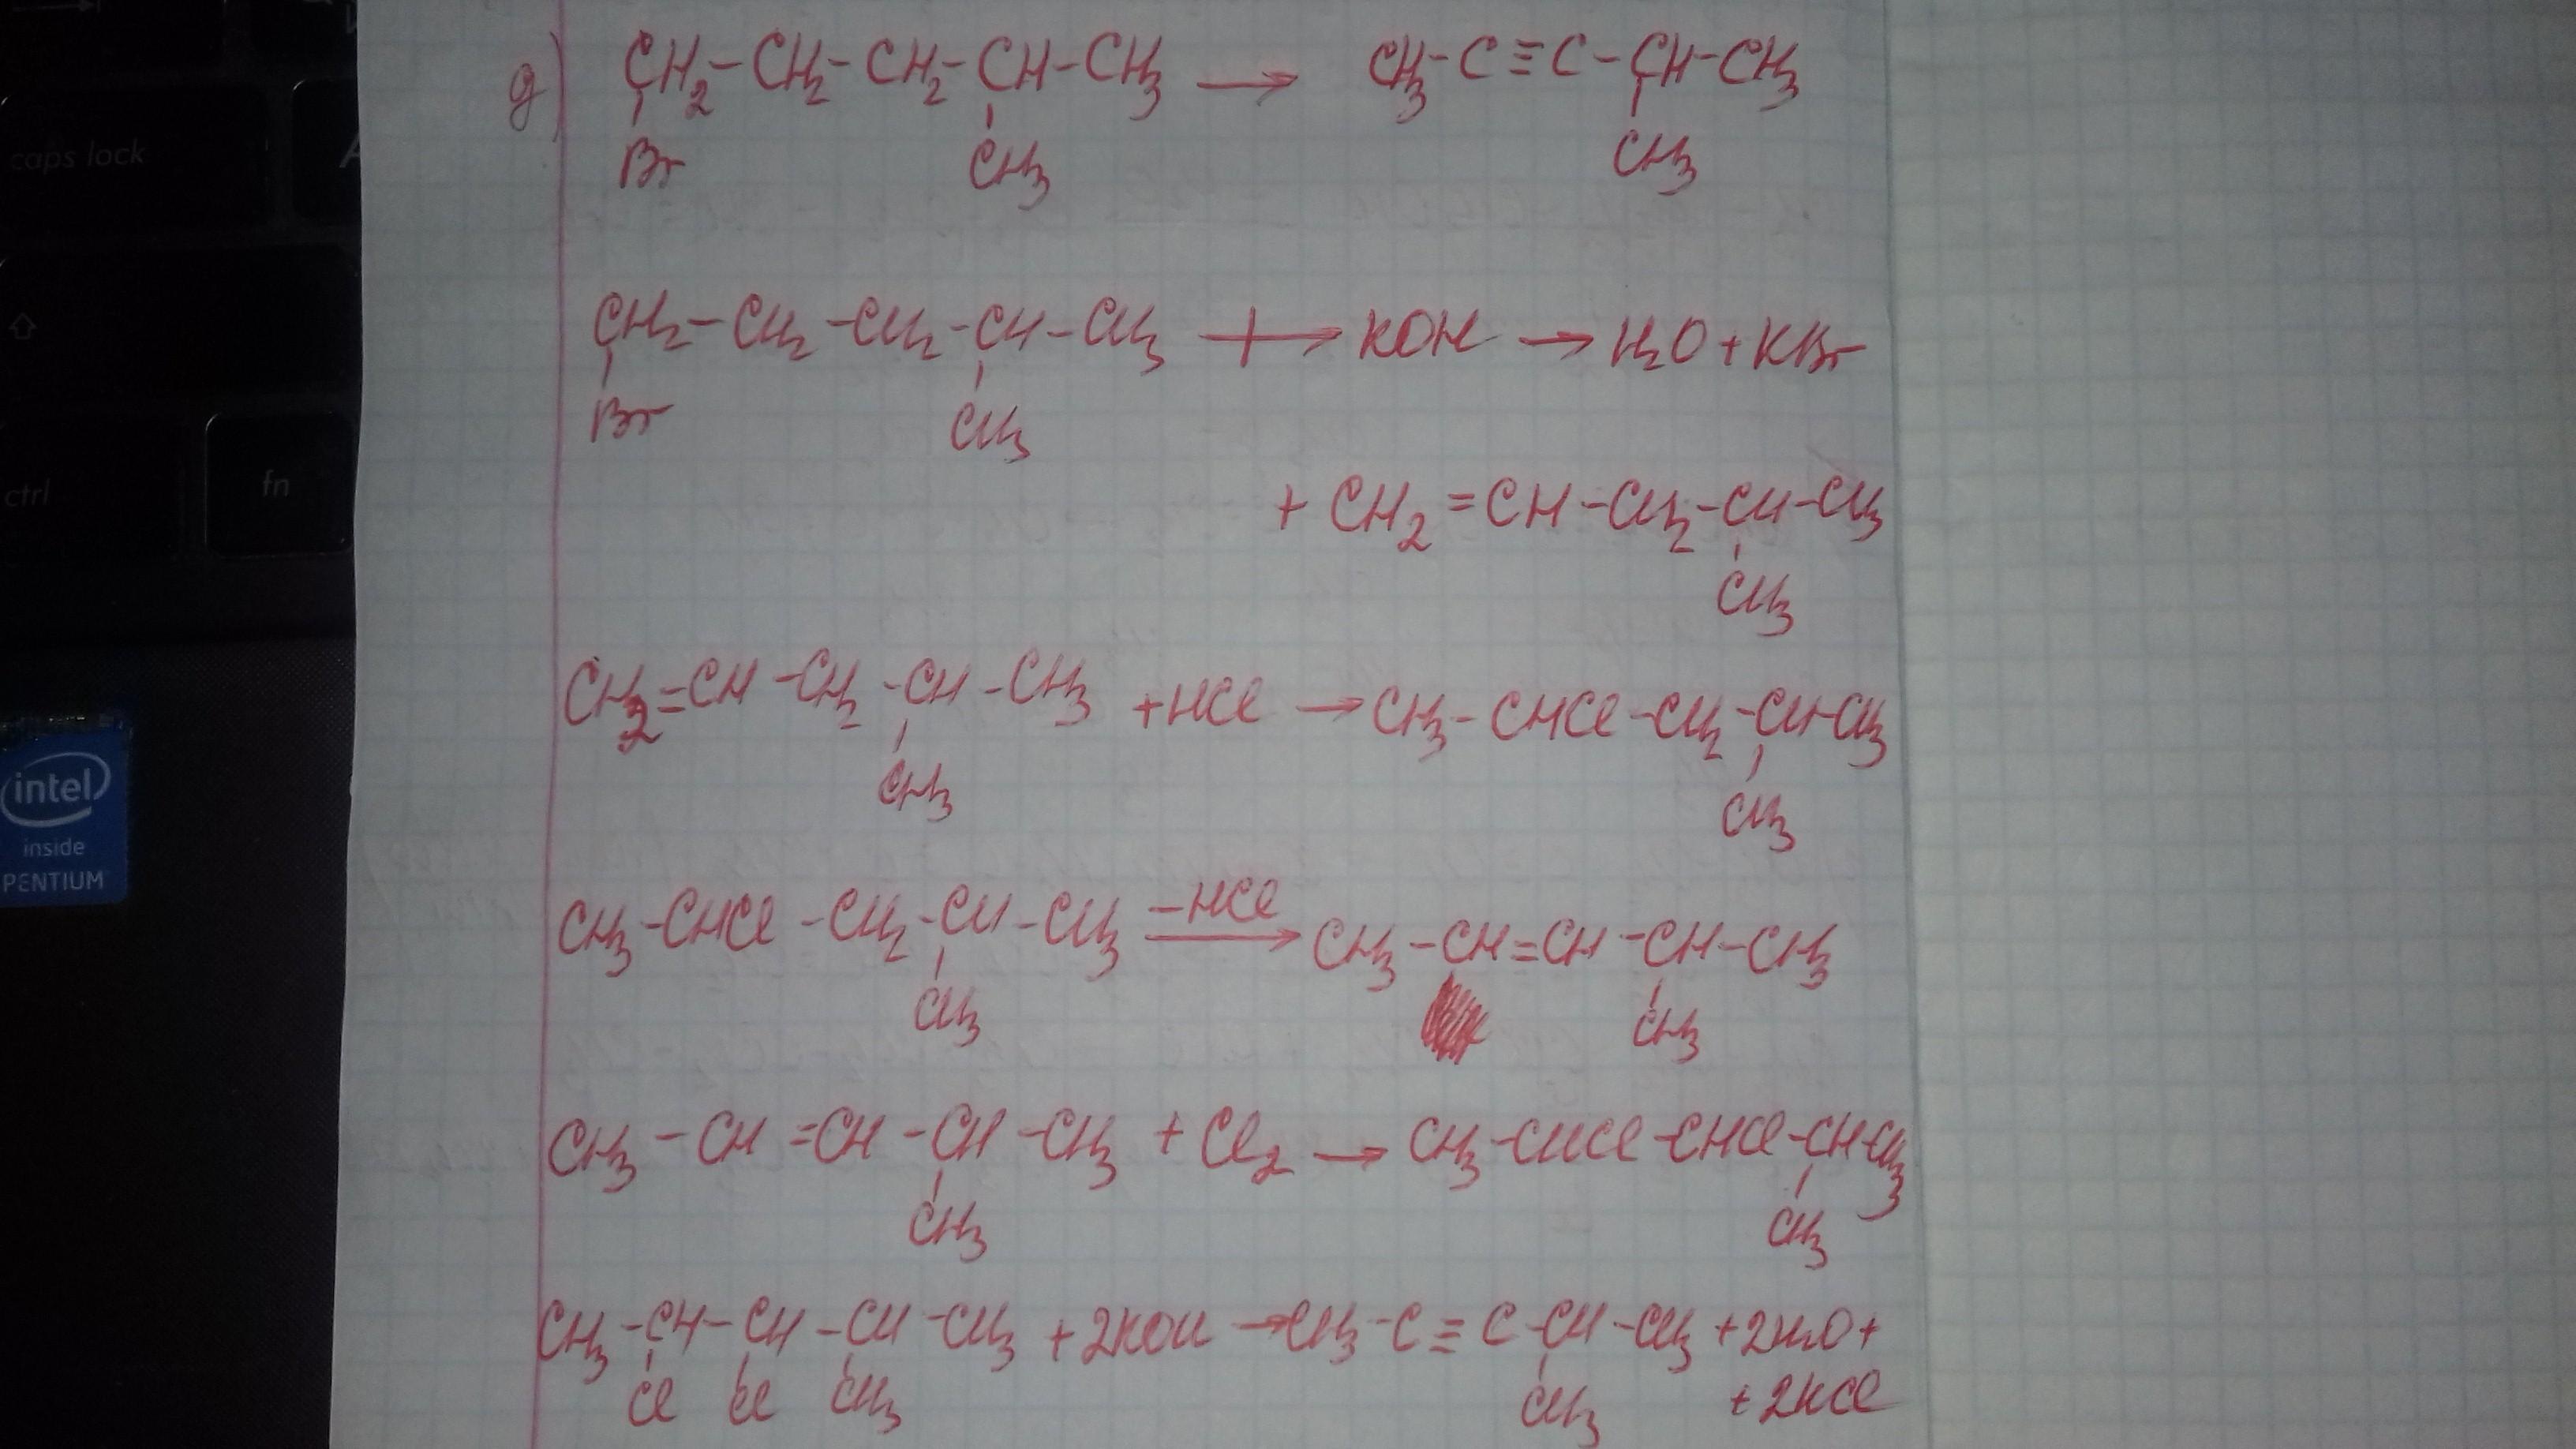 caps lock
A
ctrl
fn
intel
inside
PENTIUM
g) CH2-CH2-CH2-CH-CH3 → CH3-C≡C-CH-CH3
Br CH3 CH3
CH2-CH2-CH2-CH-CH3 +→ KOH → H2O+KBr
Br CH3
+ CH2=CH-CH2-CH-CH3
CH3
CH2=CH-CH2-CH-CH3 +HCl → CH3-CHCl-CH2-CH-CH3
CH3 CH3
CH3-CHCl-CH2-CH-CH3 -HCl → CH3-CH=CH-CH-CH3
CH3 CH3
CH3-CH=CH-CH-CH3 + Cl2 → CH3-CHCl-CHCl-CH-CH3
CH3 CH3
CH3-CH-CH-CH-CH3 +2KOH → CH3-C≡C-CH-CH3 +2H2O+
Cl Cl CH3 CH3 +2KCl